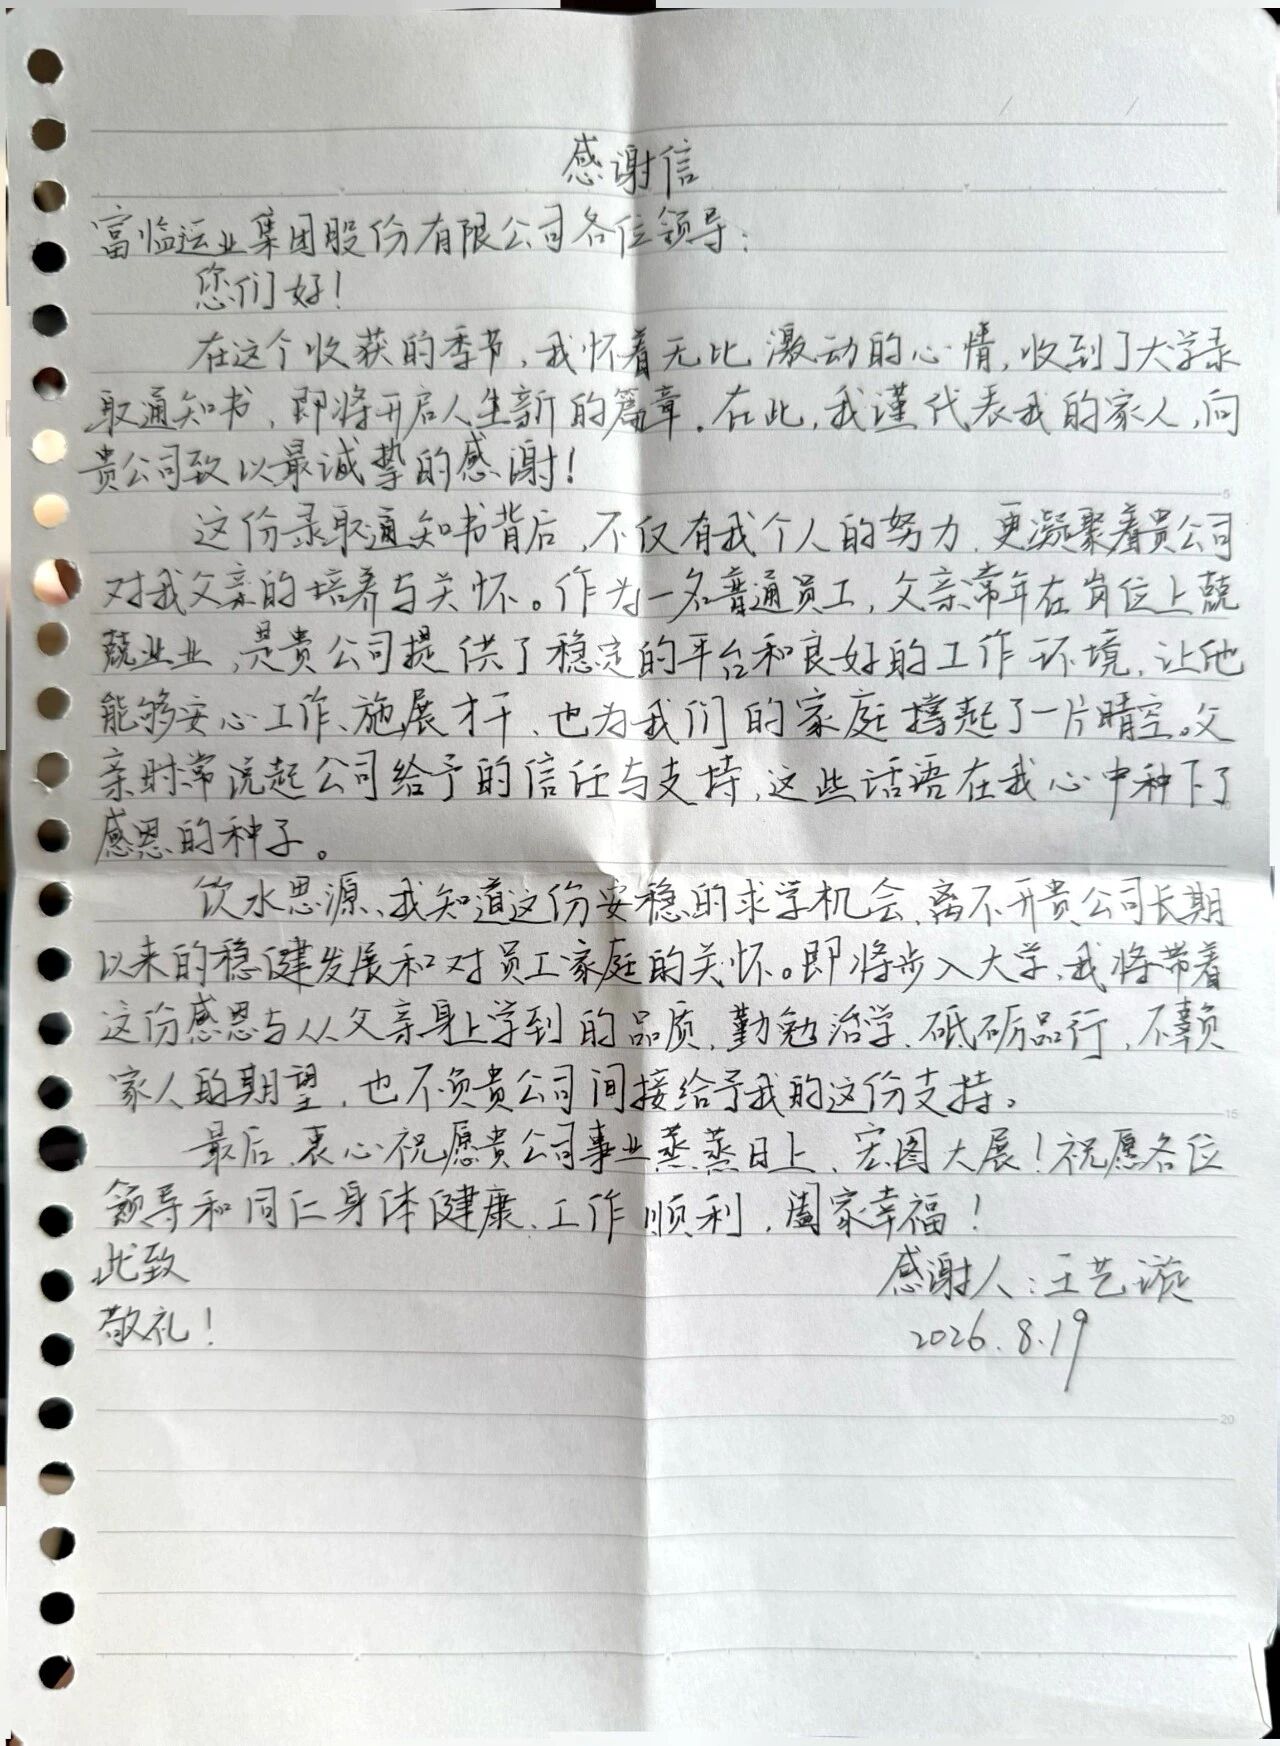 感谢信
富临运业集团股份有限公司各位领导：
您们好！
在这个收获的季节，我怀着无比激动的心情，收到了大学录
取通知书，即将开启人生新的篇章。在此，我谨代表我的家人，向
贵公司致以最诚挚的感谢！
这份录取通知书背后，不仅有我个人的努力，更凝聚着贵公司
对我父亲的培养与关怀。作为一名普通员工，父亲常年在岗位上兢
兢业业，是贵公司提供了稳定的平台和良好的工作环境，让他
能够安心工作、施展才干，也为我们的家庭撑起了一片晴空。父
亲时常说起公司给予的信任与支持，这些话语在我心中种下了
感恩的种子。
饮水思源，我知道这份安稳的求学机会，离不开贵公司长期
以来的稳健发展和对员工家庭的关怀。即将步入大学，我将带着
这份感恩与从父亲身上学到的品质，勤勉治学，砥砺品行，不负
家人的期望，也不负贵公司间接给予我的这份支持。
最后，衷心祝愿贵公司事业蒸蒸日上，宏图大展！祝愿各位
领导和同仁身体健康、工作顺利，阖家幸福！
此致
感谢人：王艺漩
敬礼！
2026.8.19
5
10
15
20